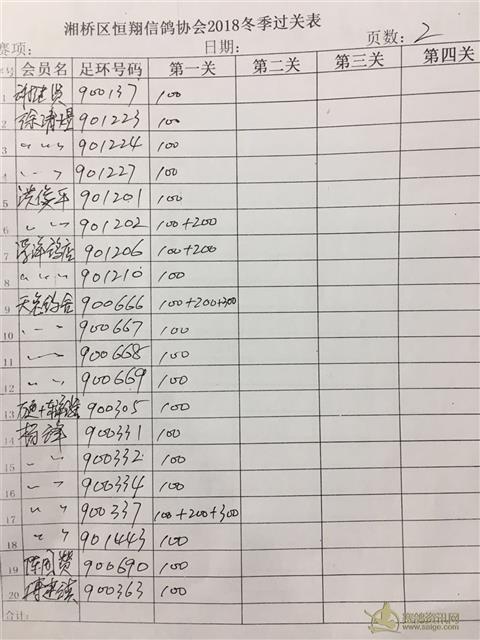 湘桥区恒翔信鸽协会2018冬季过关表
赛项: 日期: 页数: 2
序号 会员名 足环号码 第一关 第二关 第三关 第四关
1 900137 100
2 901223 100
3 〃 901224 100
4 〃 901227 100
5 洪俊平 901201 100
6 〃 901202 100+200
7 901206 100+200
8 〃 901210 100
9 900666 100+200+300
10 〃 900667 100
11 〃 900668 100
12 〃 900669 100
13 900305 100
14 杨锋 900331 100
15 〃 900332 100
16 〃 900334 100
17 〃 900337 100+200+300
18 〃 901443 100
19 900690 100
20 900363 100
合计:
赛鸽资讯网
www.saige.com